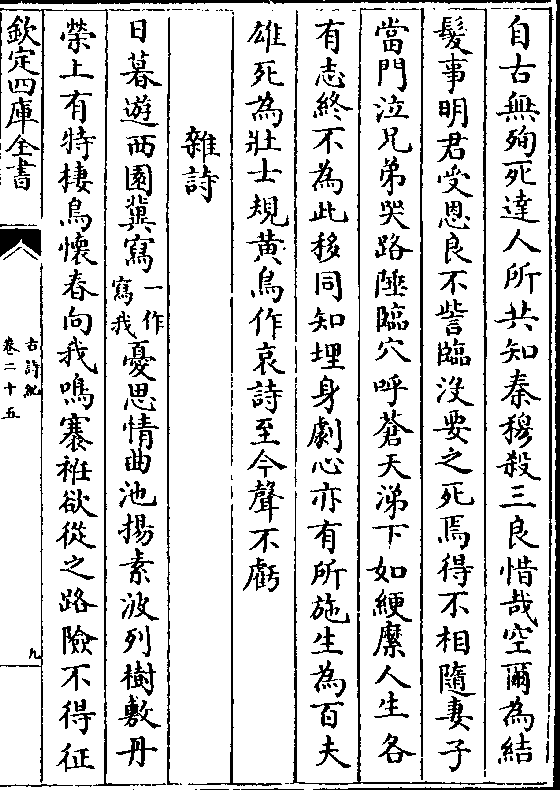 自古無殉死達人所共知秦穆殺三良惜哉空爾為結
髮事明君受恩良不訾臨沒要之死焉得不相隨妻子
當門泣兄弟哭路陲臨穴呼蒼天涕下如綆縻人生各
有志終不為此移同知埋身劇心亦有所施生為百夫
雄死為壯士規黃鳥作哀詩至今聲不虧
雜詩
日暮遊西園冀寫一作寫我憂思情曲池揚素波列樹敷丹
榮上有特棲鳥懷春向我鳴褰袵欲從之路險不得征
欽定四庫全書
古詩紀
卷二十五
九